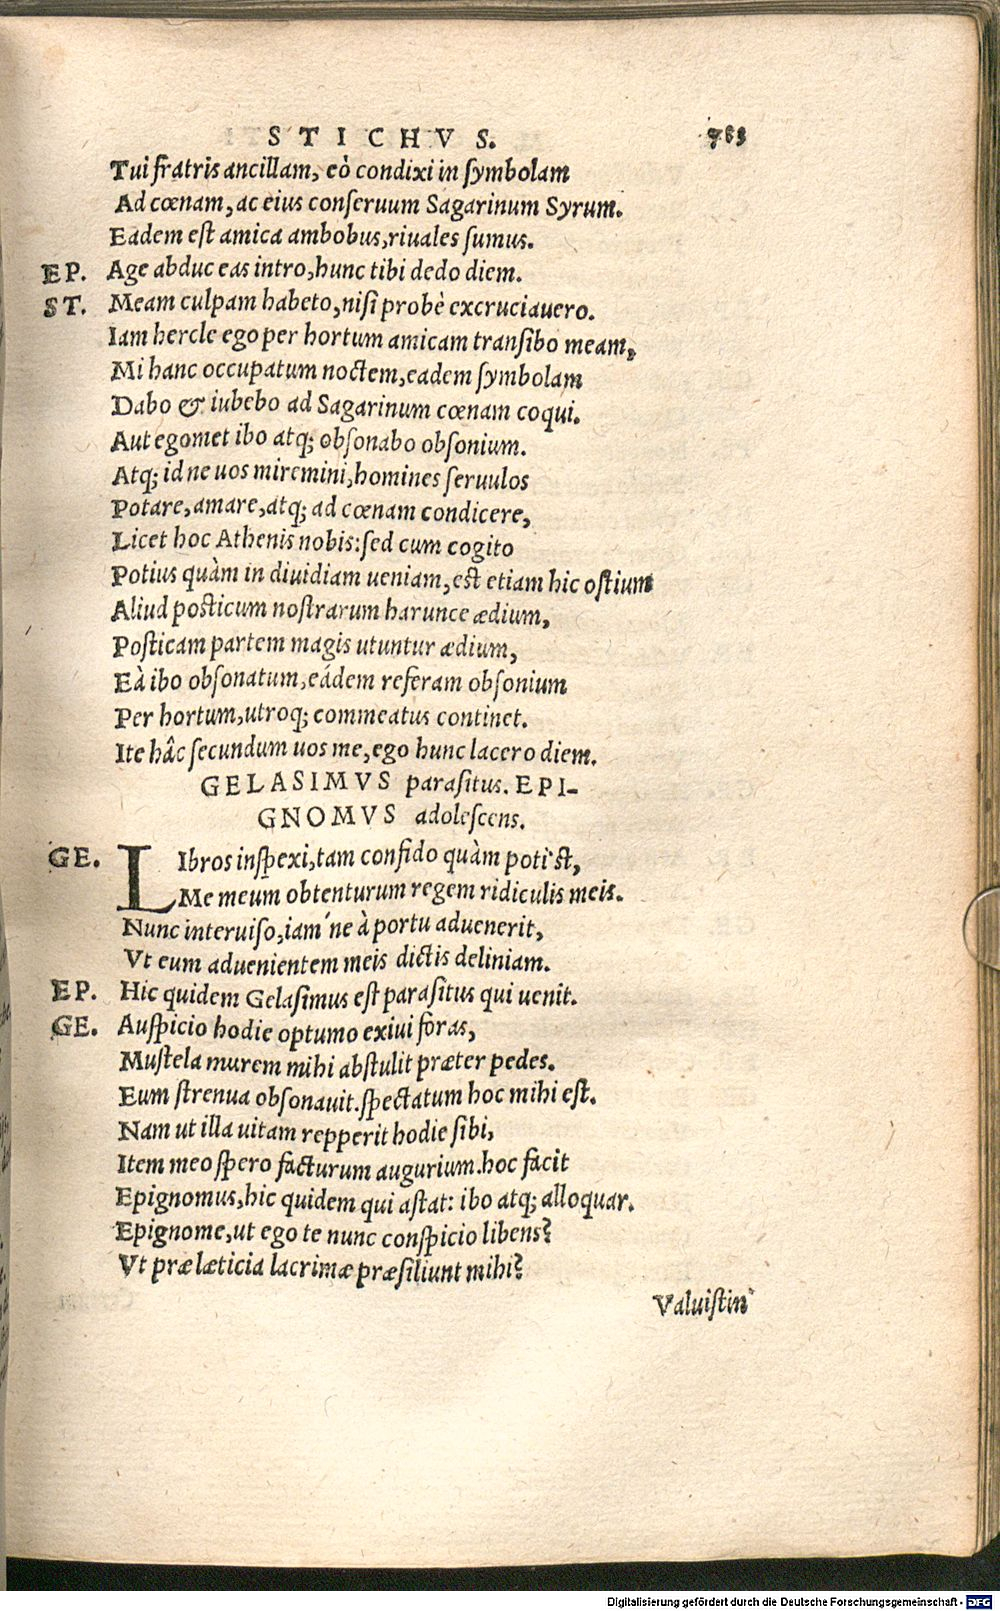 STICHVS. 783
Tui fratris ancillam, eò condixi in ſymbolam
Ad cœnam, ac eius conſeruum Sagarinum Syrum.
Eadem eſt amica ambobus, riuales ſumus.
EP. Age abduc eas intro, hunc tibi dedo diem.
ST. Meam culpam habeto, niſi probè excruciauero.
Iam hercle ego per hortum amicam tranſibo meam,
Mi hanc occupatum noctem, eadem ſymbolam
Dabo & iubebo ad Sagarinum cœnam coqui.
Aut egomet ibo atq; obſonabo obſonium.
Atq; id ne uos miremini, homines ſeruulos
Potare, amare, atq; ad cœnam condicere,
Licet hoc Athenis nobis: ſed cum cogito
Potius quàm in diuidiam ueniam, eſt etiam hic oſtium
Aliud poſticum noſtrarum harunce ædium,
Poſticam partem magis utuntur ædium,
Eà ibo obſonatum, eádem referam obſonium
Per hortum, utroq; commeatus continet.
Ite hâc ſecundum uos me, ego hunc lacero diem.
GELASIMVS paraſitus. EPI-
GNOMVS adoleſcens.
GE. Libros inſpexi, tam confido quàm poti'ſt,
Me meum obtenturum regem ridiculis meis.
Nunc interuiſo, iam'ne à portu aduenerit,
Vt eum aduenientem meis dictis deliniam.
EP. Hic quidem Gelaſimus eſt paraſitus qui uenit.
GE. Auſpicio hodie optumo exiui foras,
Muſtela murem mihi abſtulit præter pedes.
Eum ſtrenua obſonauit. ſpectatum hoc mihi eſt.
Nam ut illa uitam repperit hodie ſibi,
Item meo ſpero facturum augurium. hoc facit
Epignomus, hic quidem qui aſtat: ibo atq; alloquar.
Epignome, ut ego te nunc conſpicio libens?
Vt præ læticia lacrimæ præſiliunt mihi?
Valuiſtin'
Digitalisierung gefördert durch die Deutsche Forschungsgemeinschaft - DFG